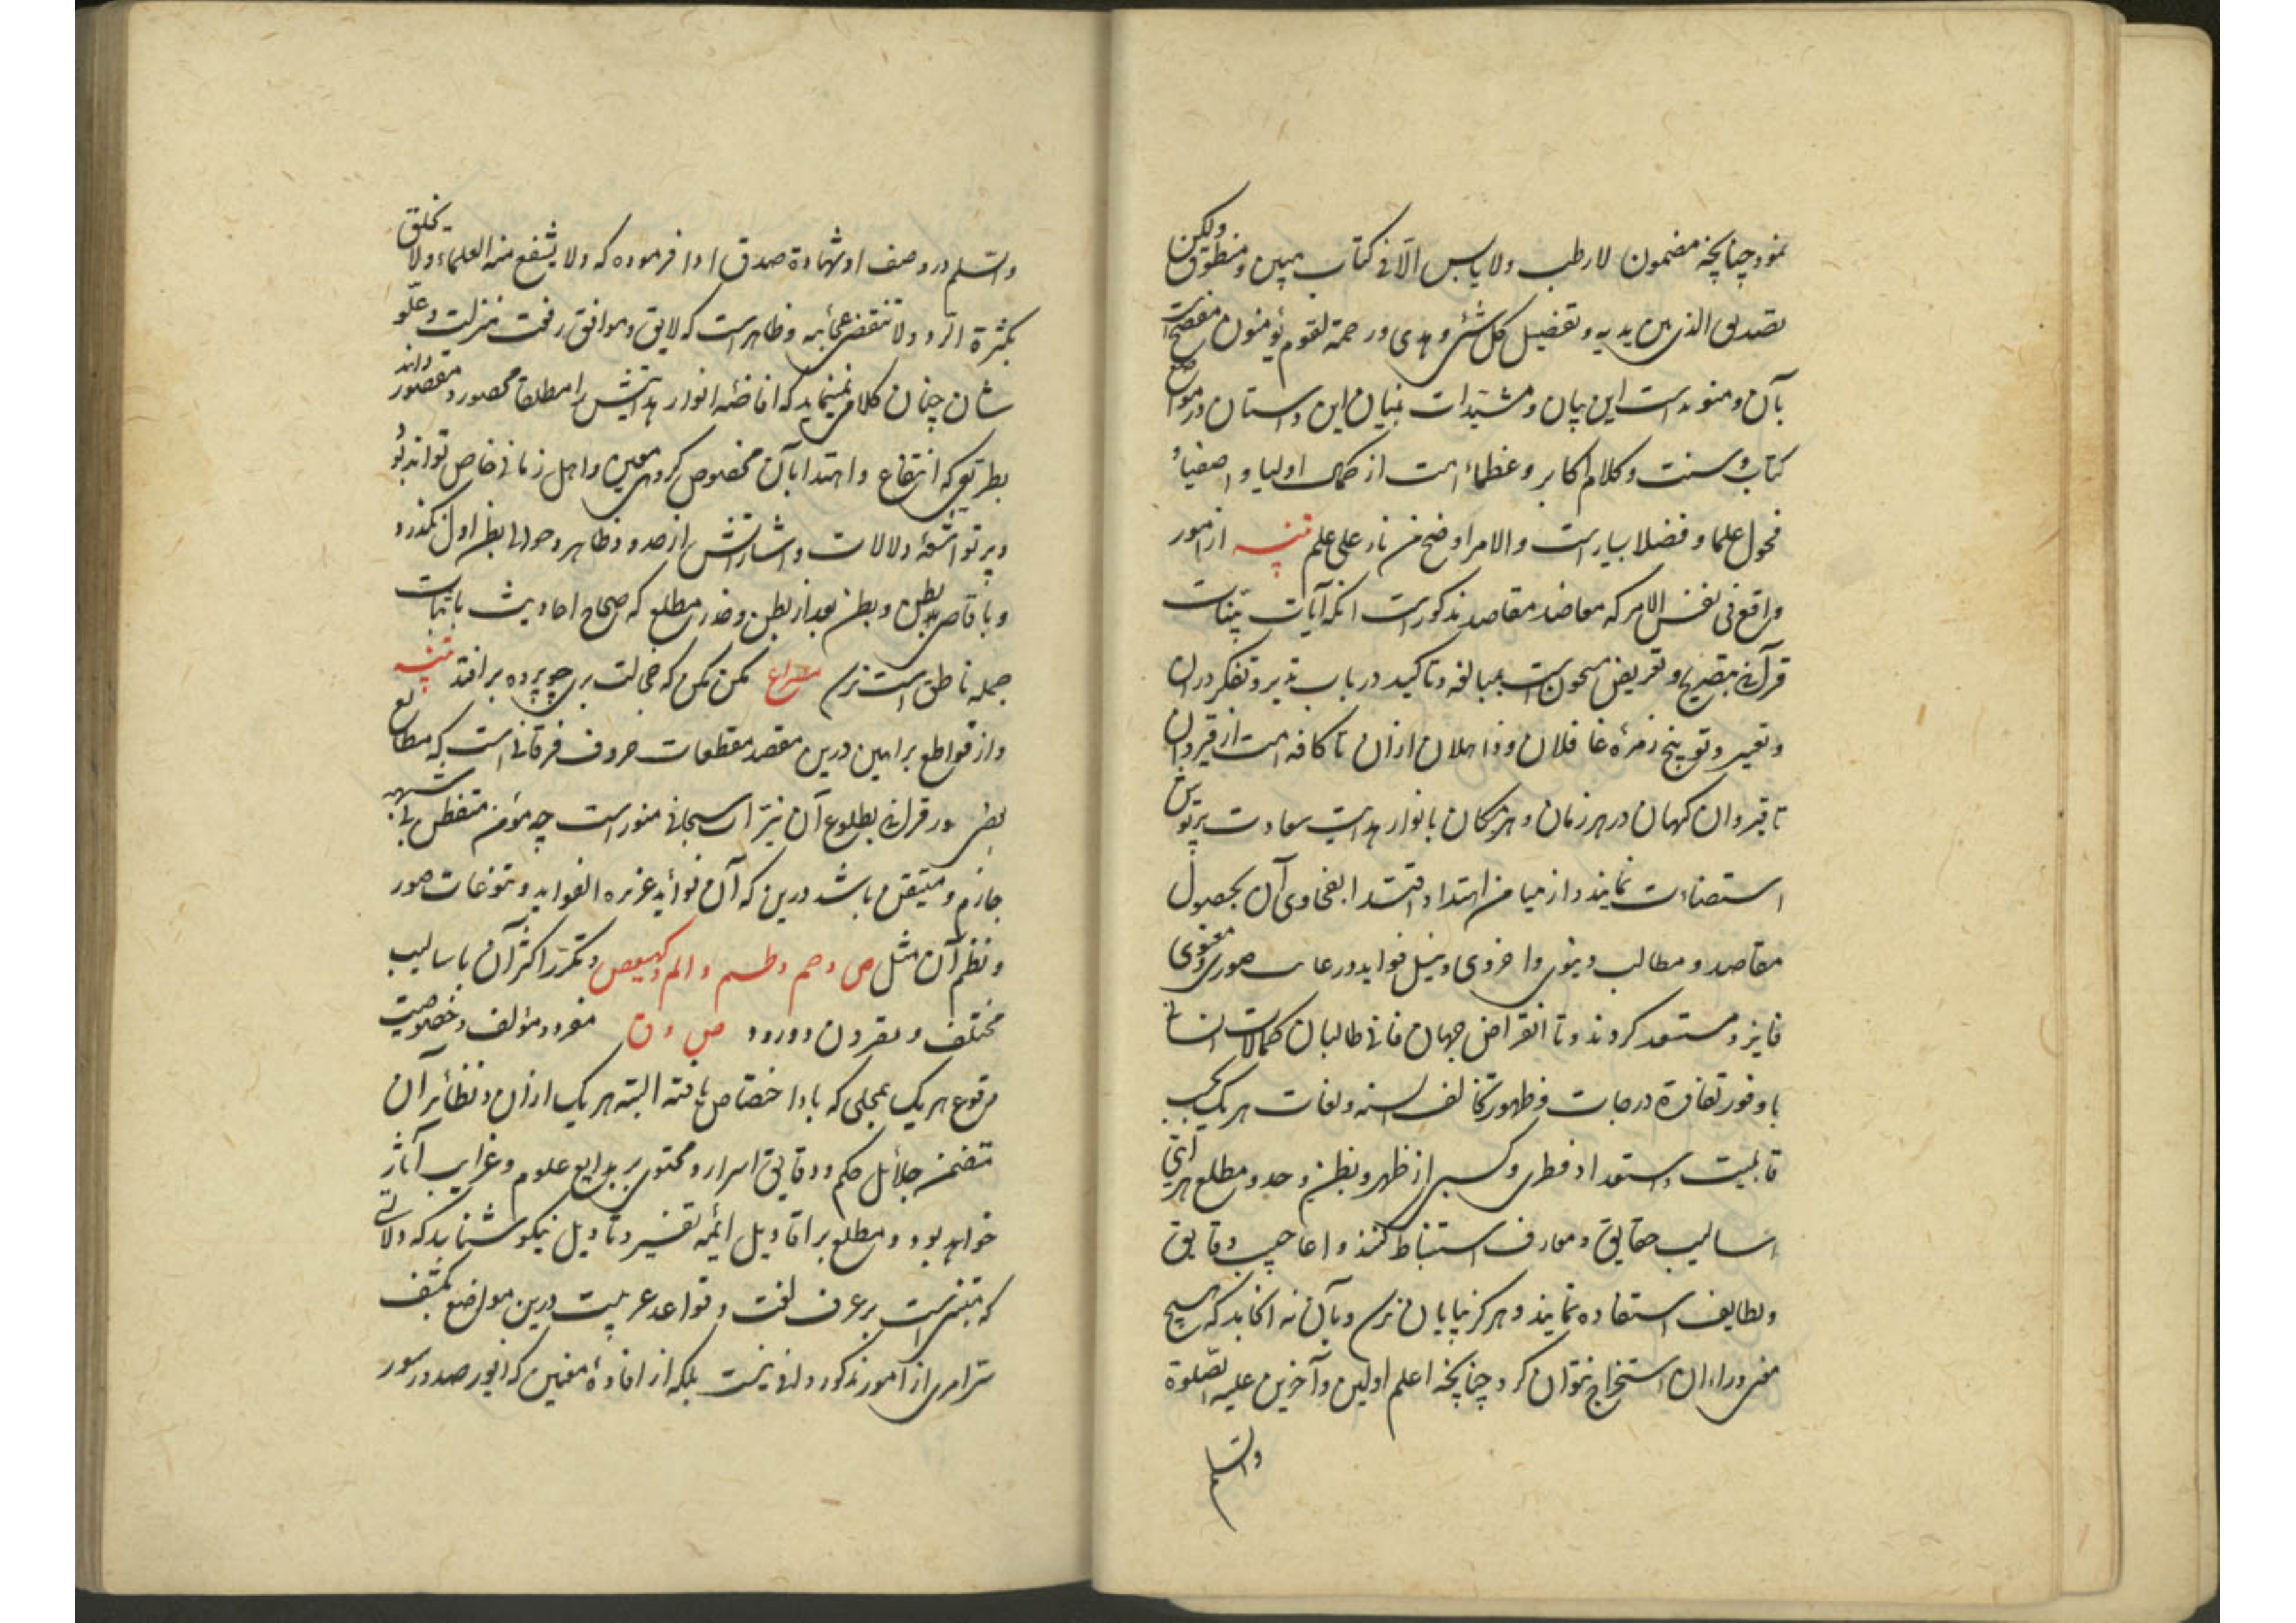 نمود چنانچه مضمون لا رطب ولا یابس الّا فی کتاب مبین و منطوق ولکن
تصدیق الذی بین یدیه و تفصیل کل شئ و هدی و رحمة لقوم یؤمنون مفصح است
بآن و منوه است این بیان و مشیدات بنیان این داستان در مواضع
کتاب و سنت و کلام اکابر و عظماء امت از کمل اولیا و اصفیا و
فحول علما و فضلا بسیار است و الامر اوضح من نار علی علم تنبیه از امور
واقع فی نفس الامر که معاضد مقاصد مذکور است آنکه آیات بینات
قرآنی بتصریح و تعریض مشحون است بمبالغه و تاکید در باب تدبر و تفکر در آن
و تعییر و توبیخ زمرهٔ غافلان و ذاهلان از آن تا کافه امت از قیروان
تا قیروان کیهان در هر زمان و هر مکان بانوار هدایت سعادت پرتوش
استضاءت نمایند و از میامن اهتدا و اقتدا بفحاوی آن بحصول
مقاصد و مطالب دنیوی و اخروی و نیل فواید و رعایت صوری و معنوی
فایز و مستعد کردند و تا انقراض جهان فانی طالبان کمالات انسانی
با وفور تفاوة درجات و ظهور تخالف السنه و لغات هر یک بحسب
قابلیت و استعداد فطری و کسبی از ظهر و بطن و حد و مطلع هر آیتی
اسالیب حقایق و معارف استنباط کنند و اعاجیب دقایق
و لطایف استفاده نمایند و هرکز بپایان نرسد و بآن نه انجامد که هیچ
مغز و راء آن استخراج نتوان کرد چنانچه اعلم اولین و آخرین علیه الصلوة
والسلم
والسلم در وصف او شهادة صدق ادا فرموده که ولا یشبع منه العلماء ولا یخلق
بکثرة الرد ولا تنقضی عجائبه و ظاهر است که لایق و موافق رفعت منزلت و علو
شان چنان کلامی نمینماید که افاضهٔ انوار هدایتش را مطلقا محصور و مقصور دانند
بطریقی که انتفاع و اهتدا بآن مخصوص کروهی معین و اهل زمانی خاص تواند بود
و پرتو اشعهٔ دلالات و اشاراتش از حدود ظاهر و حوالی بطن اول نکذرد
و باقاصی بطن و بطن بعد از بطن و حد و مطلع که صحاح احادیث باثبات
جمله ناطق است نرسد مصراع مکن مکن که خجالت بری چو پرده برافتد تنبیه
و از قواطع براهین درین مقصد مقطعات حروف فرقانی است که مطالع
بعضی سور قرآنی بطلوع آن نیرات سبحانی منور است چه مؤمن متفطن بی شبهه
جازم و متیقن باشد درین که آن فواید عزیزه الفواید و تنوعات صور
و نظم آن مثل ص و حم و طسم و الم و کهیعص و تکرر اکثر آن باسالیب
مختلف و مقرون و ورود ص و ق مفرد و مؤلف و خصوصیت
وقوع هر یک بمحلی که بدان اختصاص یافته البته هر یک از آن و نظائر آن
متضمن جلائل حکم و دقایق اسرار و محتوی بر بدایع علوم و غرایب آثار
خواهد بود و مطلع بر اقاویل ائمه تفسیر و تاویل نیکو شناسد که دلالتی
که مبتنی است بر عرف لغت و قواعد عربیت درین مواضع بکشف
سر امری از امور مذکور وافی نیست بلکه از افادهٔ معنیی که در صدور سور